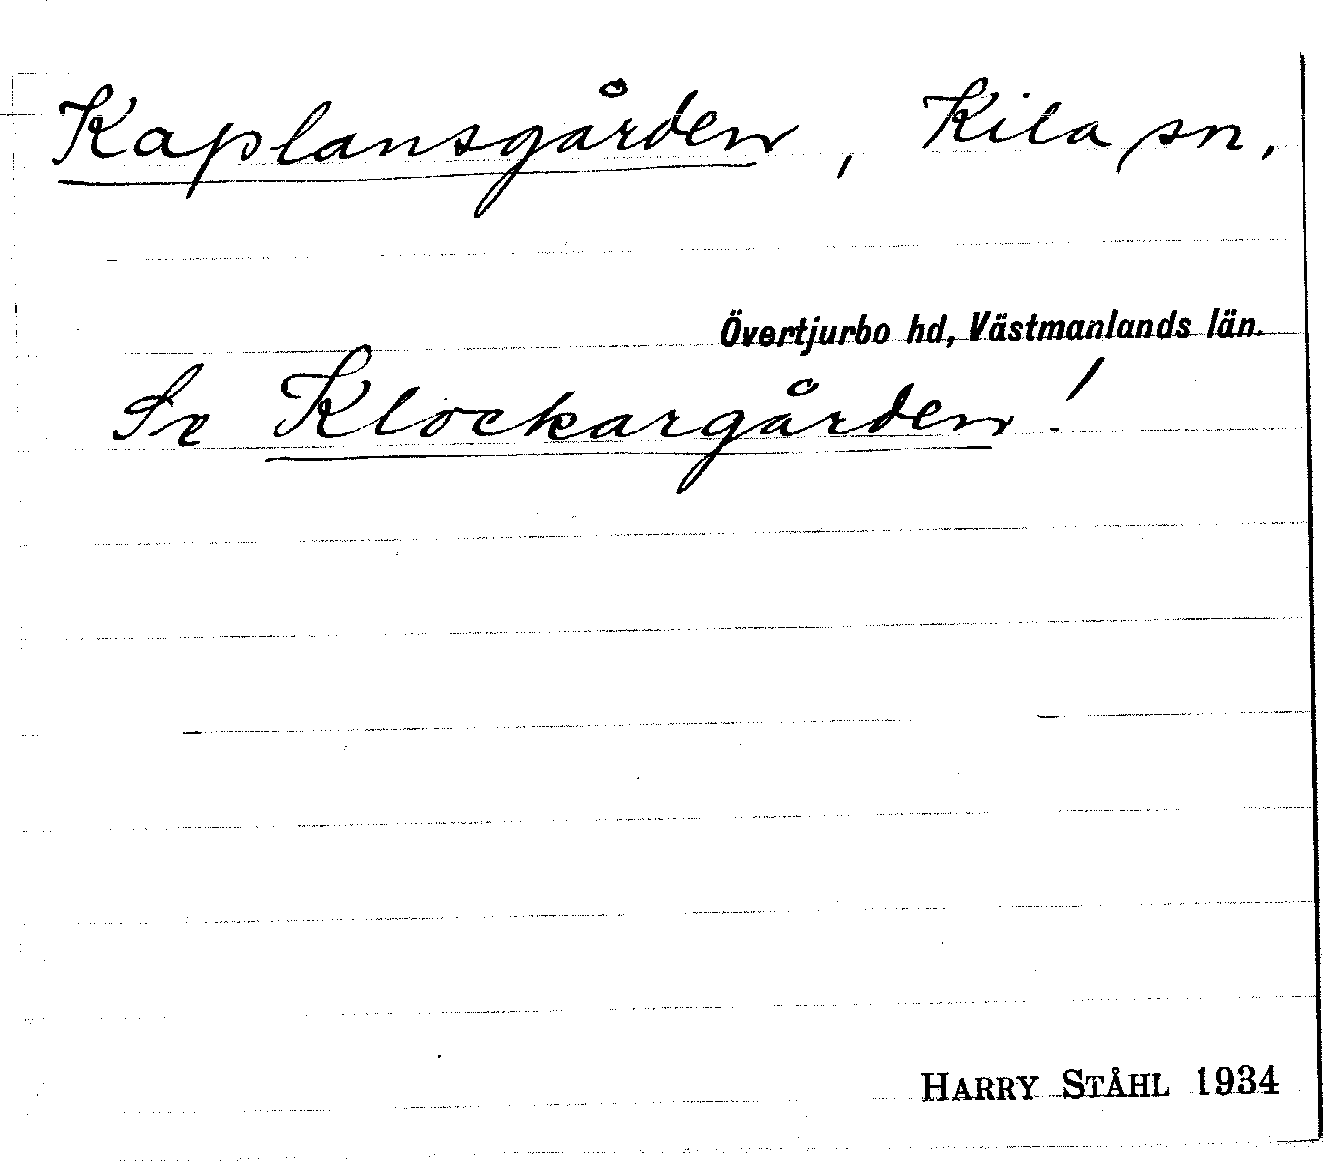 Kaplansgården, Kila sn,
Övertjurbo hd, Västmanlands län.
Se Klockargården!
HARRY STÅHL 1934